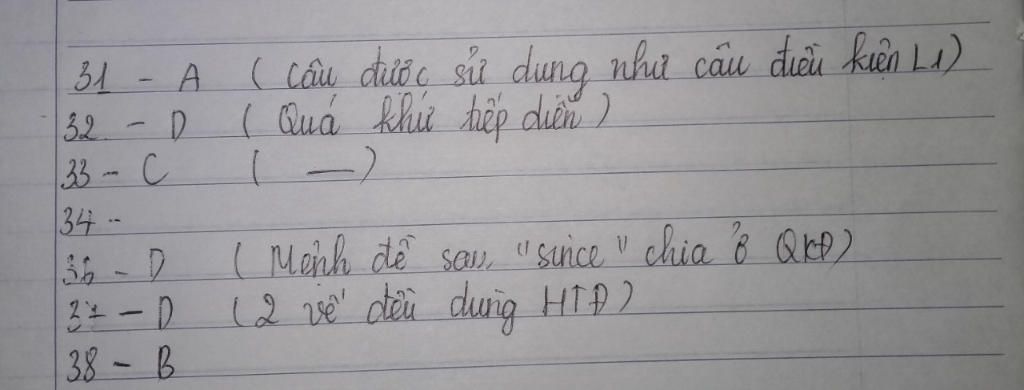 31 - A ( câu được sử dung như câu điều kiện L1)
32 - D ( Quá khứ tiếp diễn )
33 - C ( — )
34 -
36 - D ( Mệnh đề sau "since" chia ở QKĐ)
37 - D ( 2 vế đều dùng HTĐ )
38 - B